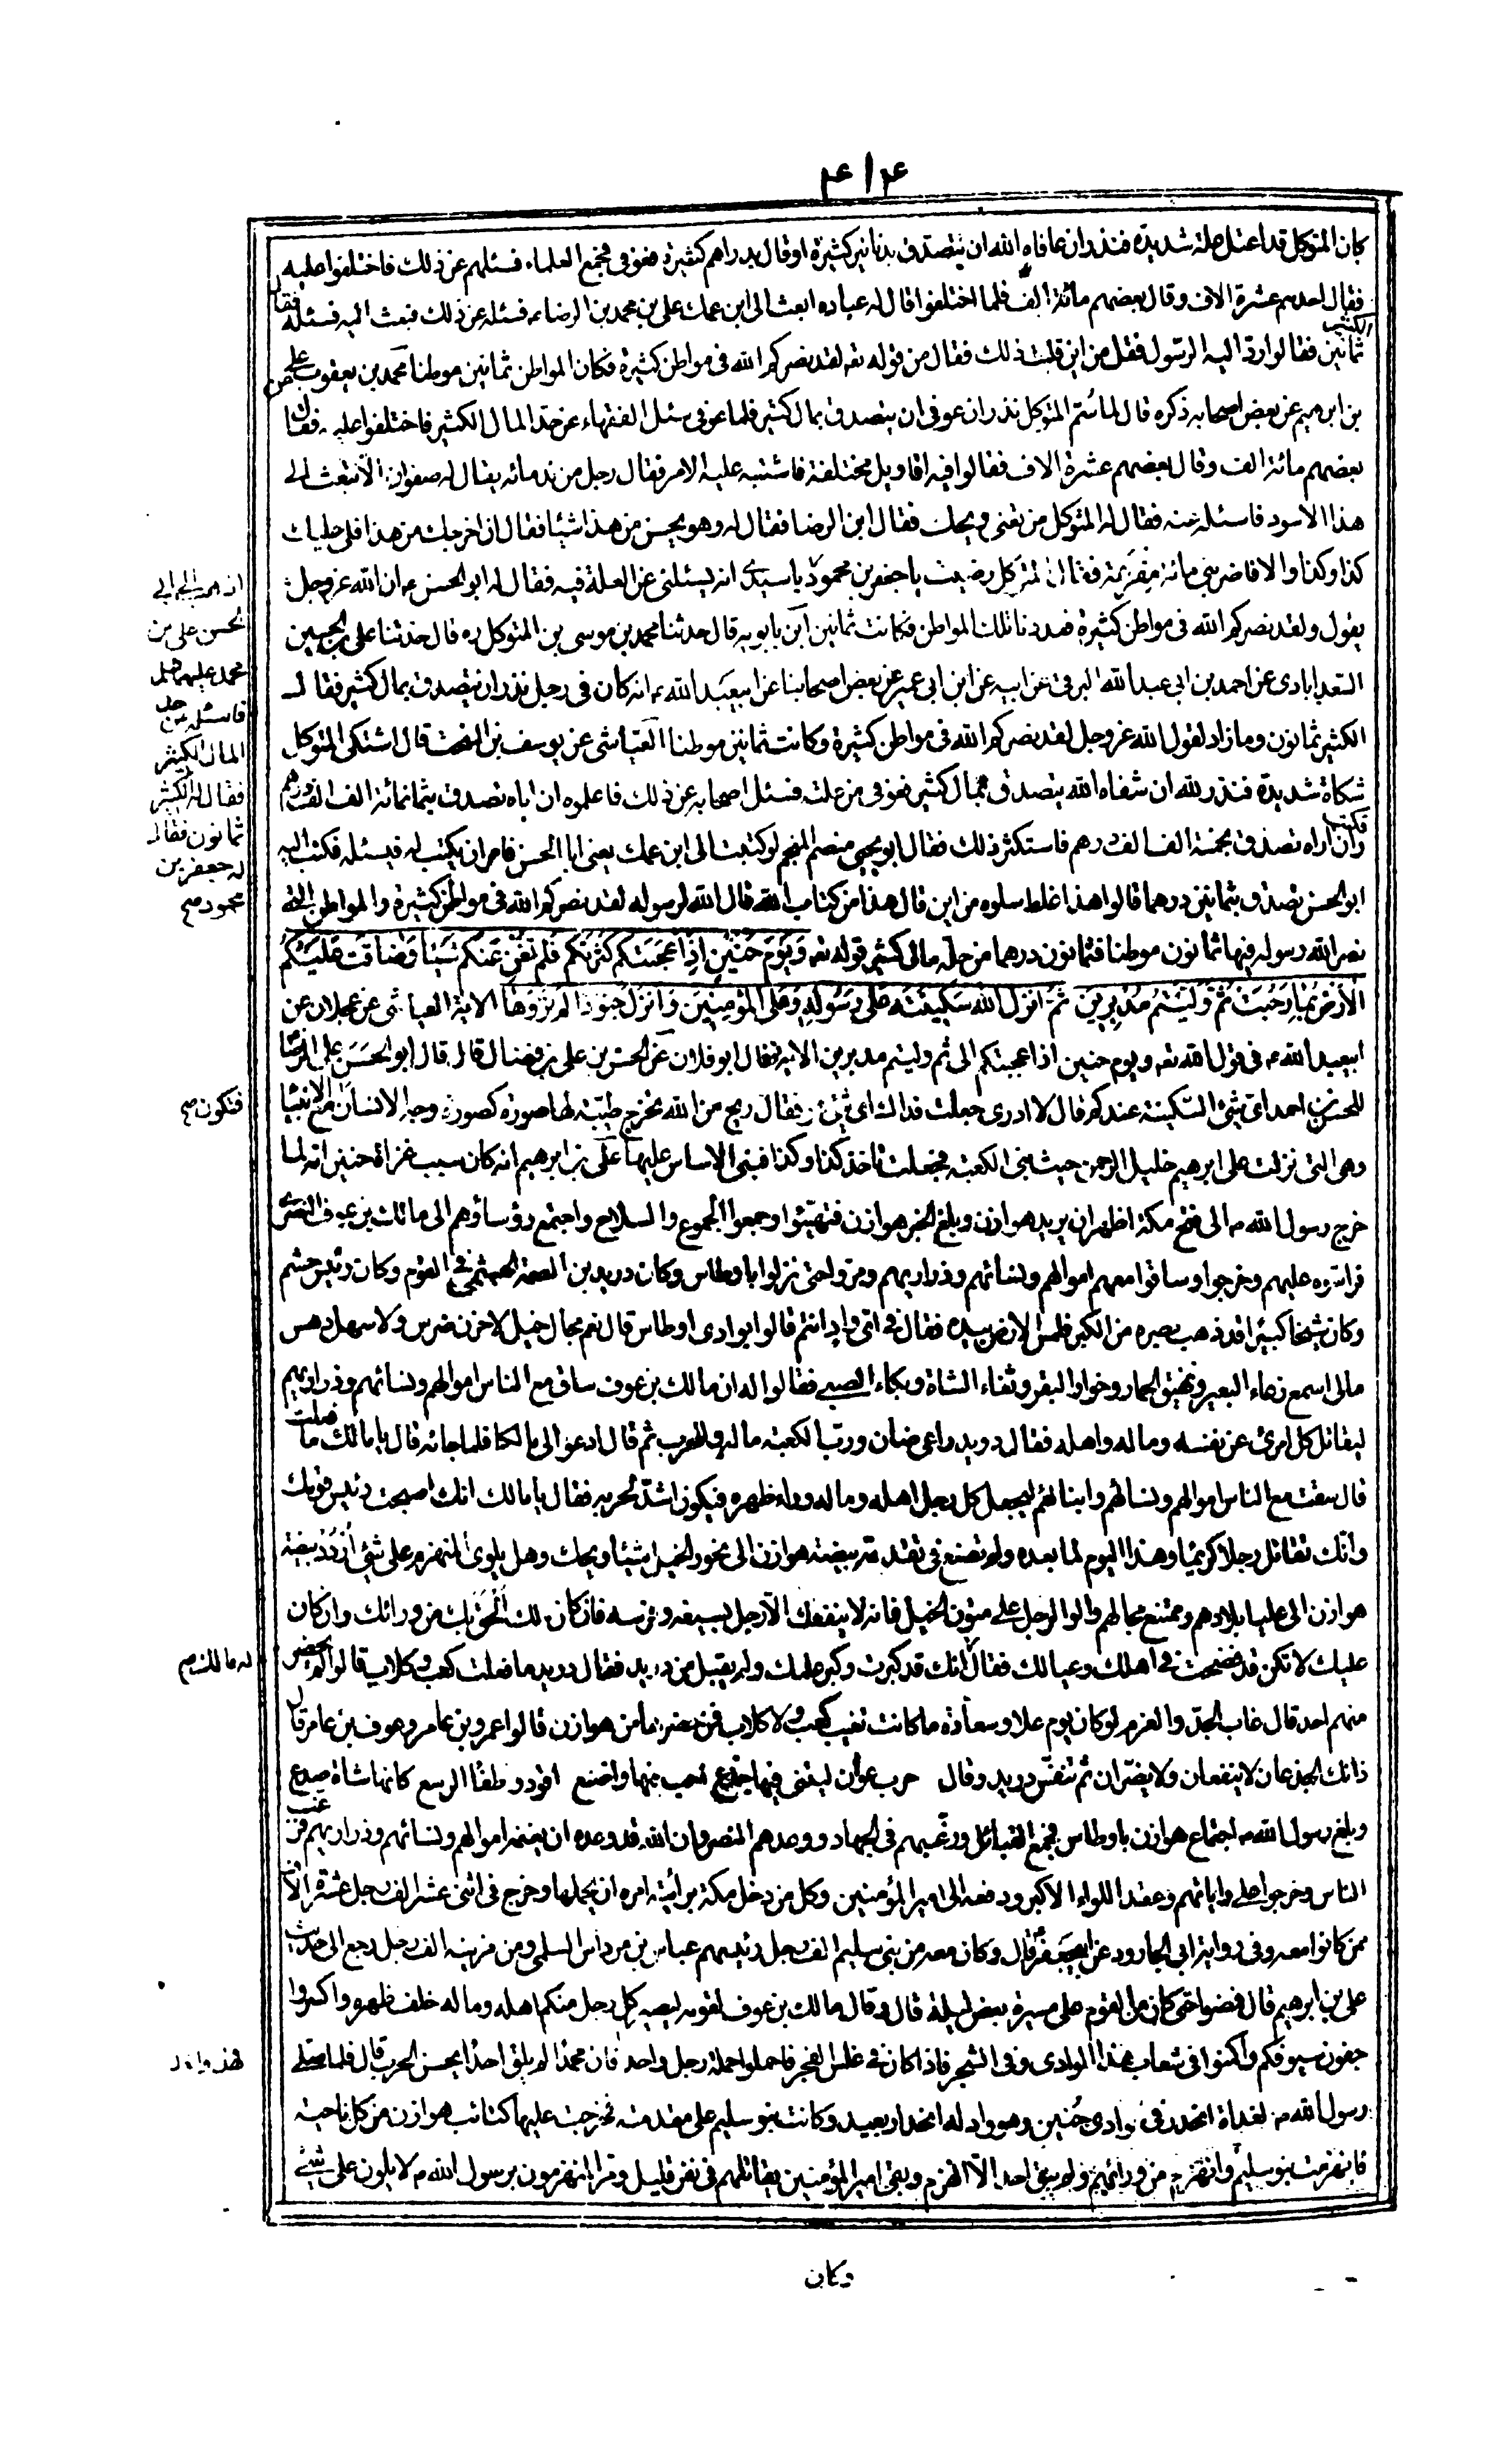 ۴۱۴
كان المتوكل قد اعتل علة شديدة فنذر ان عافاه الله ان يتصدق بدنانير كثيرة او قال بدراهم كثيرة فعوفى فجمع العلماء فسئلهم عن ذلك فاختلفوا عليه
فقال احدهم عشرة الاف وقال بعضهم مائة الف فلما اختلفوا قال له عباده ابعث الى ابن عمك على بن محمد بن الرضاء فسئله عن ذلك فبعث اليه فسئله فقال الكثير
ثمانين فقالوا رد اليه الرسول فقل من اين قلت ذلك فقال من قوله تع لقد نصركم الله فى مواطن كثيرة فكان المواطن ثمانين موطنا محمد بن يعقوب عن على
بن ابرهيم عن بعض اصحابه ذكره قال لما سُمّ المتوكل نذر ان عوفى ان يتصدق بمال كثير فلما عوفى سئل الفقهاء عن حد المال الكثير فاختلفوا عليه فقال
بعضهم مائة الف وقال بعضهم عشرة الاف فقالوا فيه اقاويل مختلفة فاشتبه عليه الامر فقال رجل من ندمائه يقال له صفوان الا تبعث الى
هذا الاسود فاسئله عنه فقال له المتوكل من تعنى ويحك فقال ابن الرضا فقال له وهو يحسن من هذا شيئا فقال ان اخرجك من هذا فلى عليك
كذا وكذا والا فاضربنى مائة مقرعة فقال المتوكل رضيت يا جعفر بن محمود يا سيدى انه يسئلنى عن العلة فيه فقال له ابو الحسن ع ان الله عز وجل
يقول ولقد نصركم الله فى مواطن كثيرة فعددنا تلك المواطن فكانت ثمانين ابن بابويه قال حدثنا محمد بن موسى بن المتوكل ره قال حدثنا على بن الحسين
السعدابادى عن احمد بن ابى عبد الله البرقى عن ابيه عن ابن ابى عمير عن بعض اصحابنا عن ابيعبد الله ع انه كان فى رجل نذر ان يتصدق بمال كثير فقال
الكثير ثمانون وما زاد لقول الله عز وجل لقد نصركم الله فى مواطن كثيرة وكانت ثمانين موطنا العياشى عن يوسف بن السخت قال اشتكى المتوكل
شكاة شديدة فنذر لله ان شفاه الله يتصدق بمال كثير فعوفى من علته فسئل اصحابه عن ذلك فاعلموه ان اباه تصدق بثمانمائة الف الف درهم
وان اراه تصدق بخمسة الف الف درهم فاستكثر ذلك فقال ابو يحيى بن منصم المنجم لو كتبت الى ابن عمك يعنى ابا الحسن فامر ان يكتب له فيسئله فكتب اليه فكتب
ابو الحسن تصدق بثمانين درهما قالوا هذا غلط سلوه من اين قال هذا من كتاب الله قال الله لرسوله لقد نصركم الله فى مواطن كثيرة والمواطن التى
نصر الله رسوله فيها ثمانون موطنا فثمانون درهما من حله مال كثير قوله تع وَيَوْمَ حُنَيْنٍ اِذْ اَعْجَبَتْكُمْ كَثْرَتُكُمْ فَلَمْ تُغْنِ عَنْكُمْ شَيْئًا وَضَاقَتْ عَلَيْكُمُ
الْاَرْضُ بِمَا رَحُبَتْ ثُمَّ وَلَّيْتُمْ مُدْبِرِينَ ثُمَّ اَنْزَلَ اللهُ سَكِينَتَهُ عَلَى رَسُولِهِ وَعَلَى الْمُؤْمِنِينَ وَاَنْزَلَ جُنُودًا لَمْ تَرَوْهَا الاية العياشى عن عجلان عن
ابيعبد الله ع فى قول الله تع ويوم حنين اذ اعجبتكم الى ثم وليتم مدبرين الاية فقال ابو فلان عن الحسن بن على بن فضال قال قال ابو الحسن على الرضا
للحسن بن احمد اى شئ السكينة عندكم قال لا ادرى جعلت فداك اى شئ هو فقال ريح من الله تخرج طيبة لها صورة كصورة وجه الانسان مع الانبياء
وهى التى نزلت على ابرهيم خليل الرحمن حيث بنى الكعبة فجعلت تاخذ كذا وكذا فبنى الاساس عليها على بن ابرهيم انه كان سبب غزاة حنين انه لما
خرج رسول الله ص الى فتح مكة اظهر ان يريد هوازن وبلغ الخبر هوازن فتهيئوا وجمعوا الجموع والسلاح واجتمع رؤساؤهم الى مالك بن عوف النضرى
فراسوه عليهم وخرجوا وساقوا معهم اموالهم ونسائهم وذراريهم ومروا حتى نزلوا باوطاس وكان دريد بن الصمة الجشمى فى القوم وكان رئيس جشم
وكان شيخا كبيرا قد ذهب بصره من الكبر فلمس الارض بيده فقال فى اى واد انتم قالوا بوادى اوطاس قال نعم مجال خيل لا حزن ضرس ولا سهل دهس
مالى اسمع رغاء البعير ونهيق الحمار وخوار البقر وثغاء الشاة وبكاء الصبى فقالوا له ان مالك بن عوف ساق مع الناس اموالهم ونسائهم وذراريهم
ليقاتل كل امرئ عن نفسه وماله واهله فقال دريد راعى ضان ورب الكعبة ماله وللحرب ثم قال ادعوا لى مالكا فلما جائه قال يا مالك ما فعلت
قال سقت مع الناس اموالهم ونسائهم وابنائهم ليجعل كل رجل اهله وماله وراء ظهره فيكون اشد لحربه فقال يا مالك انك اصبحت رئيس قومك
وانك تقاتل رجلا كريما وهذا اليوم لما بعده ولم تصنع فى تقدمة بيضة هوازن الى نحور الخيل شيئا ويحك وهل يلوى المنهزم على شئ اردد بيضة
هوازن الى عليا بلادهم وممتنع محالهم والوا الرجال على متون الخيل فانه لا ينفعك الا رجل بسيفه وفرسه فان كان لك لحق بك من ورائك وان كان
عليك لا تكن قد فضحت فى اهلك وعيالك فقال انك قد كبرت وكبر علمك ولم يقبل من دريد فقال دريد ما فعلت كعب وكلاب قالوا لم يحضر
منهم احد قال غاب الجد والعزم لو كان يوم علا وسعادة ما كانت تغيب كعب ولا كلاب فمن حضرها من هوازن قالوا عمرو بن عامر وعوف بن عامر قال
ذانك الجذعان لا ينفعان ولا يضران ثم تنفس دريد وقال حرب عوان ليتنى فيها جذع اخب فيها واضع اقود وطفا الزمع كانها شاة صدع
وبلغ رسول الله ص اجتماع هوازن باوطاس فجمع القبائل ورغبهم فى الجهاد ووعدهم النصر وان الله قد وعده ان يغنمه اموالهم ونسائهم وذراريهم فرغب
الناس وخرجوا على راياتهم وعقد اللواء الاكبر ودفعه الى امير المؤمنين وكل من دخل مكة براية امره ان يحملها وخرج فى اثنى عشر الف رجل عشرة الاف
ممن كانوا معه وفى رواية ابى الجارود عن ابيجعفر قال وكان معه من بنى سليم الف رجل رئيسهم عباس بن مرداس السلمى ومن مزينة الف رجل رجع الى حديث
على بن ابرهيم قال فمضوا حتى كان من القوم على مسيرة بعض ليلة قال وقال مالك بن عوف لقومه ليصير كل رجل منكم اهله وماله خلف ظهره واكسروا
جفون سيوفكم واكمنوا فى شعاب هذا الوادى وفى الشجر فاذا كان فى غلس الفجر فاحملوا حملة رجل واحد فان محمدا لم يلق احدا يحسن الحرب قال فلما صلى
رسول الله ص الغداة انحدر فى وادى حنين وهو واد له انحدار بعيد وكانت بنو سليم على مقدمته فخرجت عليها كتائب هوازن من كل ناحية
فانهزمت بنو سليم وانهزم من ورائهم ولم يبق احد الا انهزم وبقى امير المؤمنين يقاتلهم فى نفر قليل ومر المنهزمون برسول الله ص لا يلون على شئ
الحسن على بن
محمد عليهما
فاسئله عن حد
المال الكثير
فقال له الكثير
ثمانون فقال
له جعفر بن
محمود صح
فتكون صح
له مالك صح
وكان